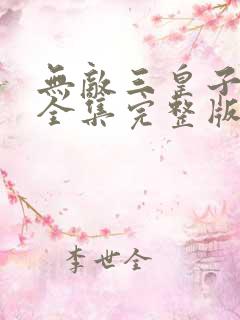 無敵三皇子
全集完整版
李世全